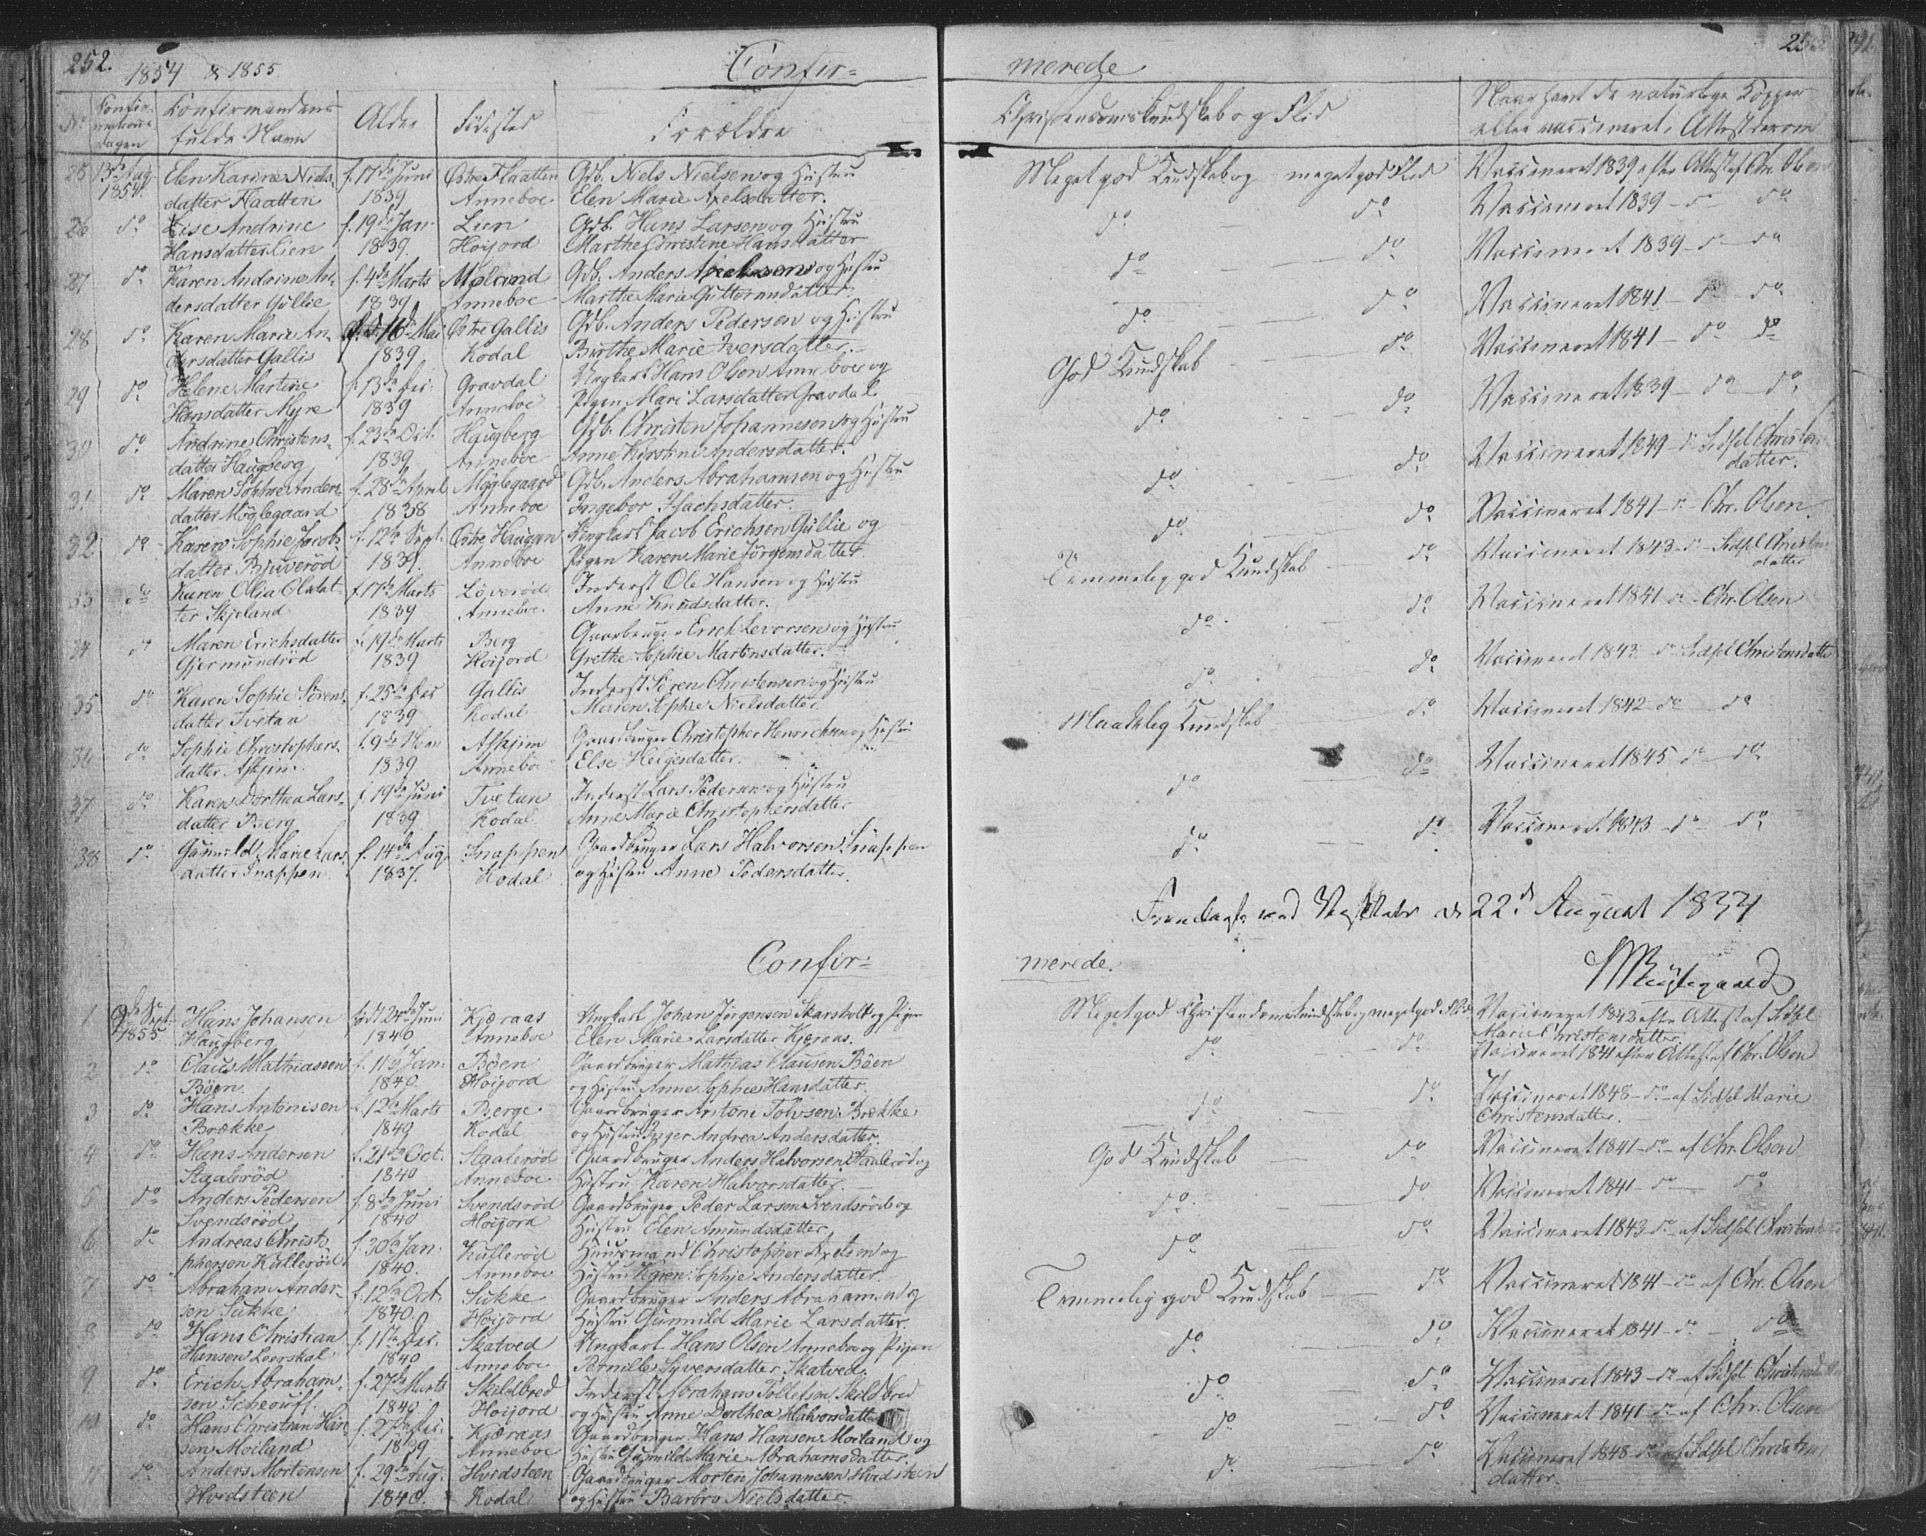 252.
1854 & 1855.
Confir-
merede
No
Confir-
mations
dagen
Confirmandens
fulde Navn
Alder
Fødested
Forældre
Christendomskundskab og Flid
Naar havt de naturlige Kopper
eller vaccineret, Attest derom
25 13de Aug. 1854. Elen Karine Niels- f. 17de Juni Østre Flaatten Gdb. Niels Nielsen og Hustru Meget god Kundskab og meget god Flid Vaccineret 1839 efter Attest af Chr. Olsen
datter Flaatten 1839 Anneboe Elen Marie Axelsdatter.
26 do Lise Andrine f. 19de Jan. Lien Gdb. Hans Larsen og Hustru do do Vaccineret 1839 - do do
Hansdatter Lien 1839. Hoijord Marthe Christine Hansdatter
27 do Karen Andrine An- f. 4de Marts Møland Gdb. Anders Axelsen og Hustru do do Vaccineret 1839 - do do
dersdatter Gullie 1839 Anneboe Marthe Marie Guttormsdatter.
28 do Karen Marie An- Mai Østre Gallis Gdb. Anders Pedersen og Hustru do do Vaccineret 1841 - do do
dersdatter Gallis 1839 Kodal Birthe Marie Iversdatter.
29 do Helene Martine f. 13de Gravdal Ungkarl Hans Olsen Anneboe og God Kundskab do Vaccineret 1841 - do do
Hansdatter Myre 1839 Anneboe Pigen Mari Larsdatter Gravdal
30 do Andrine Christens- f. 23de Haugberg Gdb. Christen Johannesen og Hustru do do Vaccineret 1839 - do do
datter Haugberg 1839 Anneboe Anne Kirstine Andersdatter.
31 do Maren Sophie Anders- f. 28de April Møglegaard Gdb. Anders Abrahamsen og Hustru do do Vaccineret 1849 - do Sidsel Christens-
datter.
datter Møglegaard 1838 Anneboe Ingebor Isachsdatter.
32 do Karen Sophie Jacobs- f. 12te Sept. Østre Haugan Ungkarl Jacob Erichsen Gullie og do do Vaccineret 1841 - do Chr. Olsen
datter Bruverød 1839. Anneboe Pigen Karen Marie Jørgensdatter
33 do Karen Olia Olsdat- f. 17de Marts Løverød Inderst Ole Hansen og Hustru Temmelig god Kundskab do Vaccineret 1843 - do Sidsel Christens-
datter
ter Skjeland 1839 Anneboe. Anne Knudsdatter.
34 do Maren Erichsdatter f. 19de Marts Berg Gaardbruger Erich Levorsen og Hustru do do Vaccineret 1841 - do Chr. Olsen
Gjermundrød 1839 Hoijord Grethe Sophie Martinsdatter.
35 do Karen Sophie Sörens- f. 25de Gallis Inderst Sören Christensen og Hustru do do Vaccineret 1843 - do Sidsel Christensdatter
datter Tvetan 1839 Kodal Maren Sophie Nielsdatter
36 do Sophie Christophers- f. 9de Askjim Gaardbruger Christopher og Hustru Maadelig Kundskab do Vaccineret 1842 do do
datter Askjim. 1839 Anneboe Else Helgesdatter.
37 do Karen Dorthea Lars- f. 19de Juni Tvetan Inderst Lars Pedersen og Hustru do do Vaccineret 1845 - do do
datter Berg 1839 Kodal Anne Marie Christophersdatter
38 do Gunnild Marie Lars- f. 14de Aug. Snappen Gaardbruger Lars Halvorsen Snappen do do Vaccineret 1843 - do do
datter Snappen 1837. Kodal og Hustru Anne Pedersdatter.
ved d. 22d August 1854
Confir-
merede.
1 2de Sept. 1855 Hans Johansen født 24de Juni Kjæraas Ungkarl Johan Jørgensen Skarsholt og Pigen Meget god Christendomskundskab og meget god Flid Vaccineret 1843 efter Attest af Sidsel
Marie Christensdatter
Haugberg 1840 Anneboe Elen Marie Larsdatter Kjæraas.
2 do Claus Mathiassen f. 11te Jan. Bøen Gaardbruger Mathias Clausen Böen do do Vaccineret 1841 efter Attest af Chr. Olsen
Böen 1840. Hoijord og Hustru Anne Sophie Hansdatter.
3 do Hans Antonisen f. 12te Marts Berge Gaardbruger Antoni Tolvsen Brække do do Vaccineret 1848 - do - af Sidsel Marie
Christensdatter.
Brække 1849 Kodal og Hustru Inger Andrea Andersdatter.
4 do Hans Andersen f. 21de Oct. Staalerød Gaardbruger Anders Halvorsen Staalerød og God Kundskab do Vaccineret 1841 - do - af Chr. Olsen
Staalerød 1840 Anneboe Hustru Karen Halvorsdatter.
5 do Anders Pedersen f. 8de Juni Svendsrød Gaardbruger Peder Larsen Svendsrød og do do Vaccineret 1841 - do do
Svendsrød 1840 Hoijord Hustru Elen Amundsdatter.
6 do Andreas Christo- f. 30te Jan. Kullerød Huusmand Christopher Axelsen og do do Vaccineret 1843 - do af Sidsel Christensdatter
phersen Kullerød 1840. Anneboe Hustru Karen Sophie Andersdatter.
7 do Abraham Ander- f. 12te Oct. Sukke Gaardbruger Anders Abrahamsen og Temmelig god Kundskab do Vaccineret 1841 - do af Chr. Olsen
sen Sukke 1840. Hoijord Hustru Gunnild Marie Larsdatter.
8 do Hans Christian f. 11te Skatved Ungkarl Hans Olsen Anneboe og Pigen do do Vaccineret 1841 - do - do
Hansen Leerskal 1840 Anneboe Pernille Syversdatter Skatved.
9 do Erich Abraham- f. 27de Marts Skeldbred Inderst Abraham Tolletsen Skeldbred do do Vaccineret 1843 - do af Sidsel Christensdatter
sen 1840 Hoijord og Hustru Anne Dorthea Halvorsdatter
10 do Hans Christian Han- f. 27de Kjæraas Gaardbruger Hans Hansen Moiland og do do Vaccineret 1841 - do af Chr. Olsen
sen Moiland 1839 Anneboe Hustru Gunnild Marie Abrahamsdatter.
11 do Anders Mortensen f. 29de Aug. Hvidsteen Gaardbruger Morten Johannesen Hvidsteen do do Vaccineret 1848 do af Sidsel Christens-
datter.
Hvidsteen 1840. Kodal og Hustru Barbro Nielsdatter.